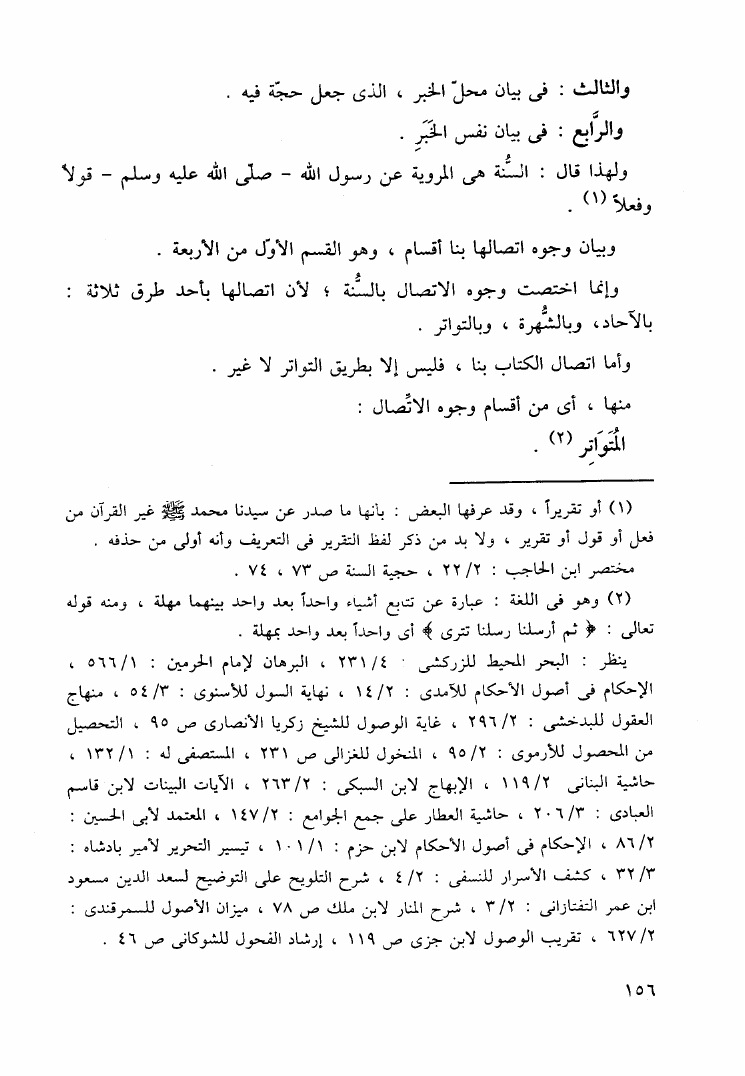 والثالث : فى بيان محلّ الخبر ، الذى جعل حجّة فيه .
والرَّابع : فى بيان نفس الخَبَرِ .
ولهذا قال : السُّنة هى المروية عن رسول الله – صلّى الله عليه وسلم – قولاً
وفعلاً (١) .
وبيان وجوه اتصالها بنا أقسام ، وهو القسم الأوّل من الأربعة .
وإنما اختصت وجوه الاتصال بالسُّنة ؛ لأن اتصالها بأحد طرق ثلاثة :
بالآحاد، وبالشُّهرة ، وبالتواتر .
وأما اتصال الكتاب بنا ، فليس إلا بطريق التواتر لا غير .
منها ، أى من أقسام وجوه الاتِّصال :
المُتَوَاتِر (٢) .
(١) أو تقريراً ، وقد عرفها البعض : بأنها ما صدر عن سيدنا محمد ﷺ غير القرآن من
فعل أو قول أو تقرير ، ولا بد من ذكر لفظ التقرير فى التعريف وأنه أولى من حذفه .
مختصر ابن الحاجب : ٢٢/٢ ، حجية السنة ص ٧٣ ، ٧٤ .
(٢) وهو فى اللغة : عبارة عن تتابع أشياء واحداً بعد واحد بينهما مهلة ، ومنه قوله
تعالى : ﴿ ثم أرسلنا رسلنا تترى ﴾ أى واحداً بعد واحد بمهلة .
ينظر : البحر المحيط للزركشى ٢٣١/٤ ، البرهان لإمام الحرمين : ٥٦٦/١ ،
الإحكام فى أصول الأحكام للآمدى : ١٤/٢ ، نهاية السول للأسنوى : ٥٤/٣ ، منهاج
العقول للبدخشى : ٢٩٦/٢ ، غاية الوصول للشيخ زكريا الأنصارى ص ٩٥ ، التحصيل
من المحصول للأرموى : ٩٥/٢ ، المنخول للغزالى ص ٢٣١ ، المستصفى له : ١٣٢/١ ،
حاشية البنانى ١١٩/٢ ، الإبهاج لابن السبكى : ٢٦٣/٢ ، الآيات البينات لابن قاسم
العبادى : ٢٠٦/٣ ، حاشية العطار على جمع الجوامع : ١٤٧/٢ ، المعتمد لأبى الحسين :
٨٦/٢ ، الإحكام فى أصول الأحكام لابن حزم : ١٠١/١ ، تيسير التحرير لأمير بادشاه :
٣٢/٣ ، كشف الأسرار للنسفى : ٤/٢ ، شرح التلويح على التوضيح لسعد الدين مسعود
ابن عمر التفتازانى : ٣/٢ ، شرح المنار لابن ملك ص ٧٨ ، ميزان الأصول للسمرقندى :
٦٢٧/٢ ، تقريب الوصول لابن جزى ص ١١٩ ، إرشاد الفحول للشوكانى ص ٤٦ .
١٥٦